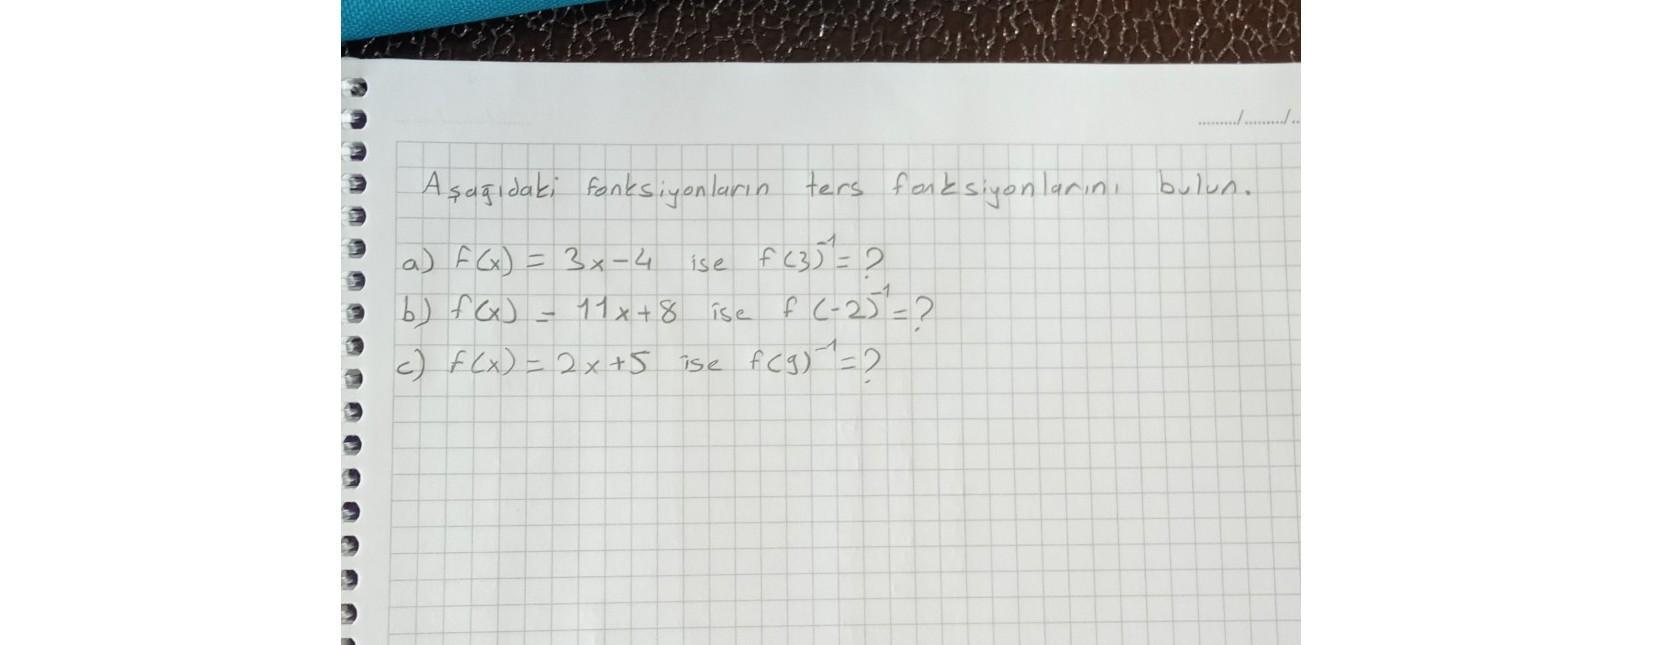 ......../........./..
Aşağıdaki fonksiyonların ters fonksiyonlarını bulun.
a) f(x) = 3x-4 ise f(3)⁻¹= ?
b) f(x) = 11x+8 ise f(-2)⁻¹= ?
c) f(x) = 2x+5 ise f(9)⁻¹= ?